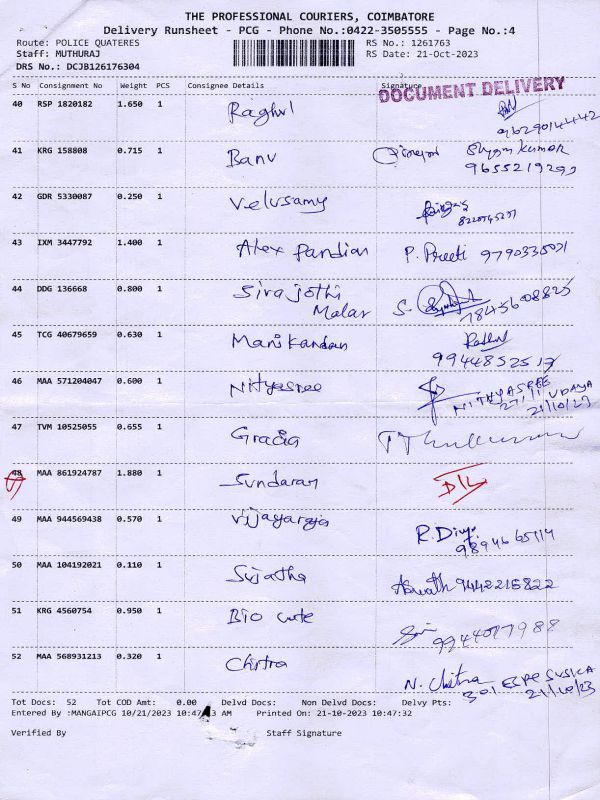 THE PROFESSIONAL COURIERS, COIMBATORE
Delivery Runsheet - PCG - Phone No.:0422-3505555 - Page No.:4
Route: POLICE QUATERES RS No.: 1261763
Staff: MUTHURAJ RS Date: 21-Oct-2023
DRS No.: DCJB126176304
S No Consignment No Weight PCS Consignee Details Signature
DOCUMENT DELIVERY
40 RSP 1820182 1.650 1 Raghul
9629014442
41 KRG 158808 0.715 1 Banu Shyam Kumar
9655219299
42 GDR 5330087 0.250 1 Velusamy
43 IXM 3447792 1.400 1 Alex Pandian P. Preeti
44 DDG 136668 0.800 1 Sirajothi Malar S.
7845608825
45 TCG 40679659 0.630 1 Manikandan
9944852517
46 MAA 571204047 0.600 1 Nityasree NITHYASREE
27/1 UDAYA
21/10/23
47 TVM 10525055 0.655 1 Gracia
48 MAA 861924787 1.880 1 Sundaram D/L
49 MAA 944569438 0.570 1 Vijayaraja R. Divya
50 MAA 104192021 0.110 1 Sujatha Aswath 9442215822
51 KRG 4560754 0.950 1 Bio cute
9944077988
52 MAA 568931213 0.320 1 Chitra N. Chitra
301
21/10/23
Tot Docs: 52 Tot COD Amt: 0.00 Delvd Docs: Non Delvd Docs: Delvy Pts:
Entered By :MANGAIPCG 10/21/2023 10:47 AM Printed On: 21-10-2023 10:47:32
Verified By Staff Signature